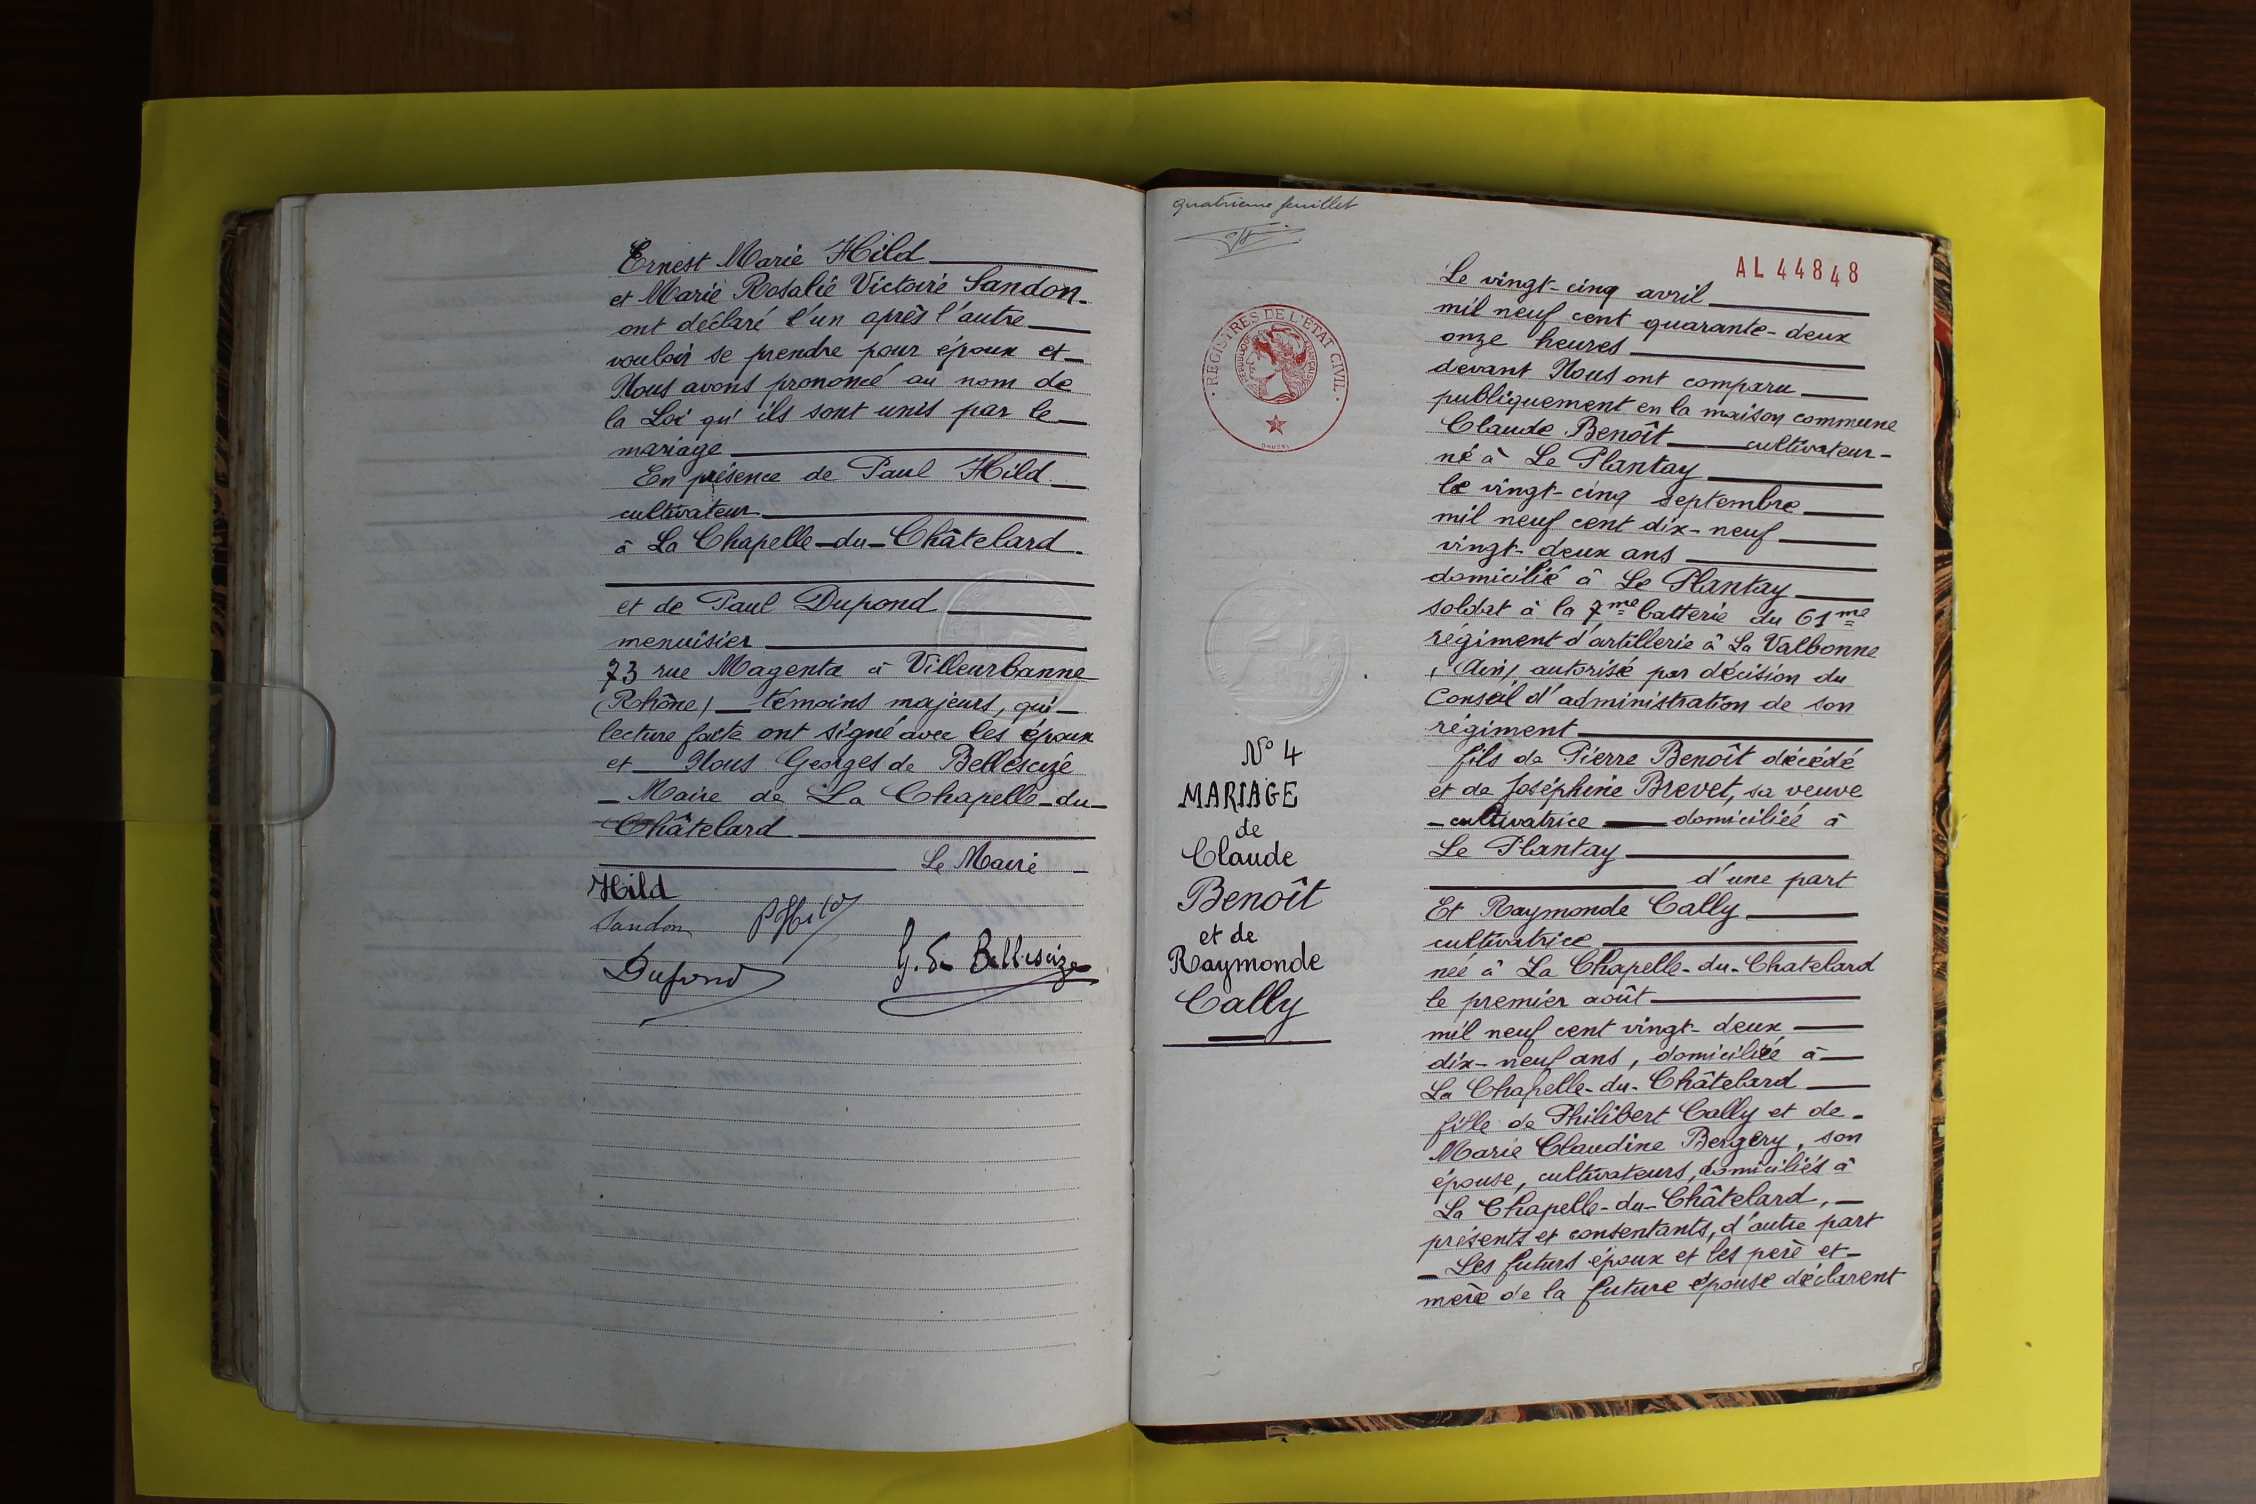 Ernest Marie Hild
et Marie Rosalie Victoire Sandon
ont déclaré l'un après l'autre
vouloir se prendre pour époux et
Nous avons prononcé au nom de
la Loi qu'ils sont unis par le
mariage
En présence de Paul Hild
cultivateur
à La Chapelle-du-Châtelard.
et de Paul Dupond
menuisier
73 rue Magenta à Villeurbanne
(Rhône) témoins majeurs, qui
lecture faite ont signé avec les époux
et Nous Georges de Bellescize
Maire de La Chapelle-du-
Châtelard
Le Maire
Hild
Sandon P Hild
Dupond G. de Bellescize
quatrième feuillet
AL 44848
REGISTRES DE L'ETAT CIVIL
REPUBLIQUE FRANÇAISE
N° 4
MARIAGE
de
Claude
Benoît
et de
Raymonde
Cally
Le vingt-cinq avril
mil neuf cent quarante-deux
onze heures
devant Nous ont comparu
publiquement en la maison commune
Claude Benoît cultivateur
né à Le Plantay
le vingt-cinq septembre
mil neuf cent dix-neuf
vingt-deux ans
domicilié à Le Plantay
soldat à la 7me batterie du 61me
régiment d'artillerie à La Valbonne
(Ain) autorisé par décision du
Conseil d'administration de son
régiment
fils de Pierre Benoît décédé
et de Joséphine Brevet, sa veuve
cultivatrice domiciliée à
Le Plantay
d'une part
Et Raymonde Cally
cultivatrice
née à La Chapelle-du-Chatelard
le premier août
mil neuf cent vingt-deux
dix-neuf ans, domiciliée à
La Chapelle-du-Châtelard
fille de Philibert Cally et de
Marie Claudine Bergery, son
épouse, cultivateurs, domiciliés à
La Chapelle-du-Châtelard,
présents et consentants, d'autre part
Les futurs époux et les père et
mère de la future épouse déclarent